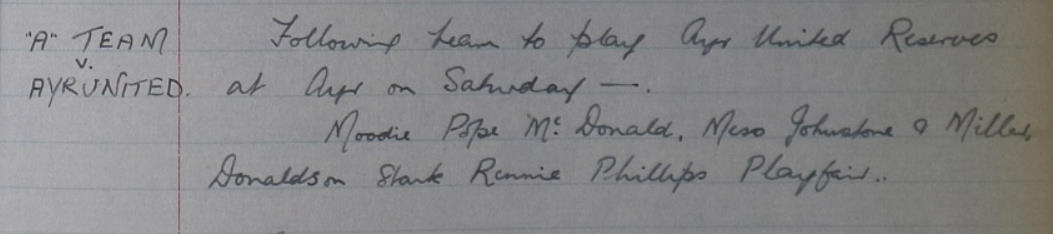 "A" TEAM
v.
AYR UNITED.
Following team to play Ayr United Reserves
at Ayr on Saturday —.
Moodie Pope Mc Donald, Johnstone & Miller,
Donaldson Stark Rennie Phillips Playfair..